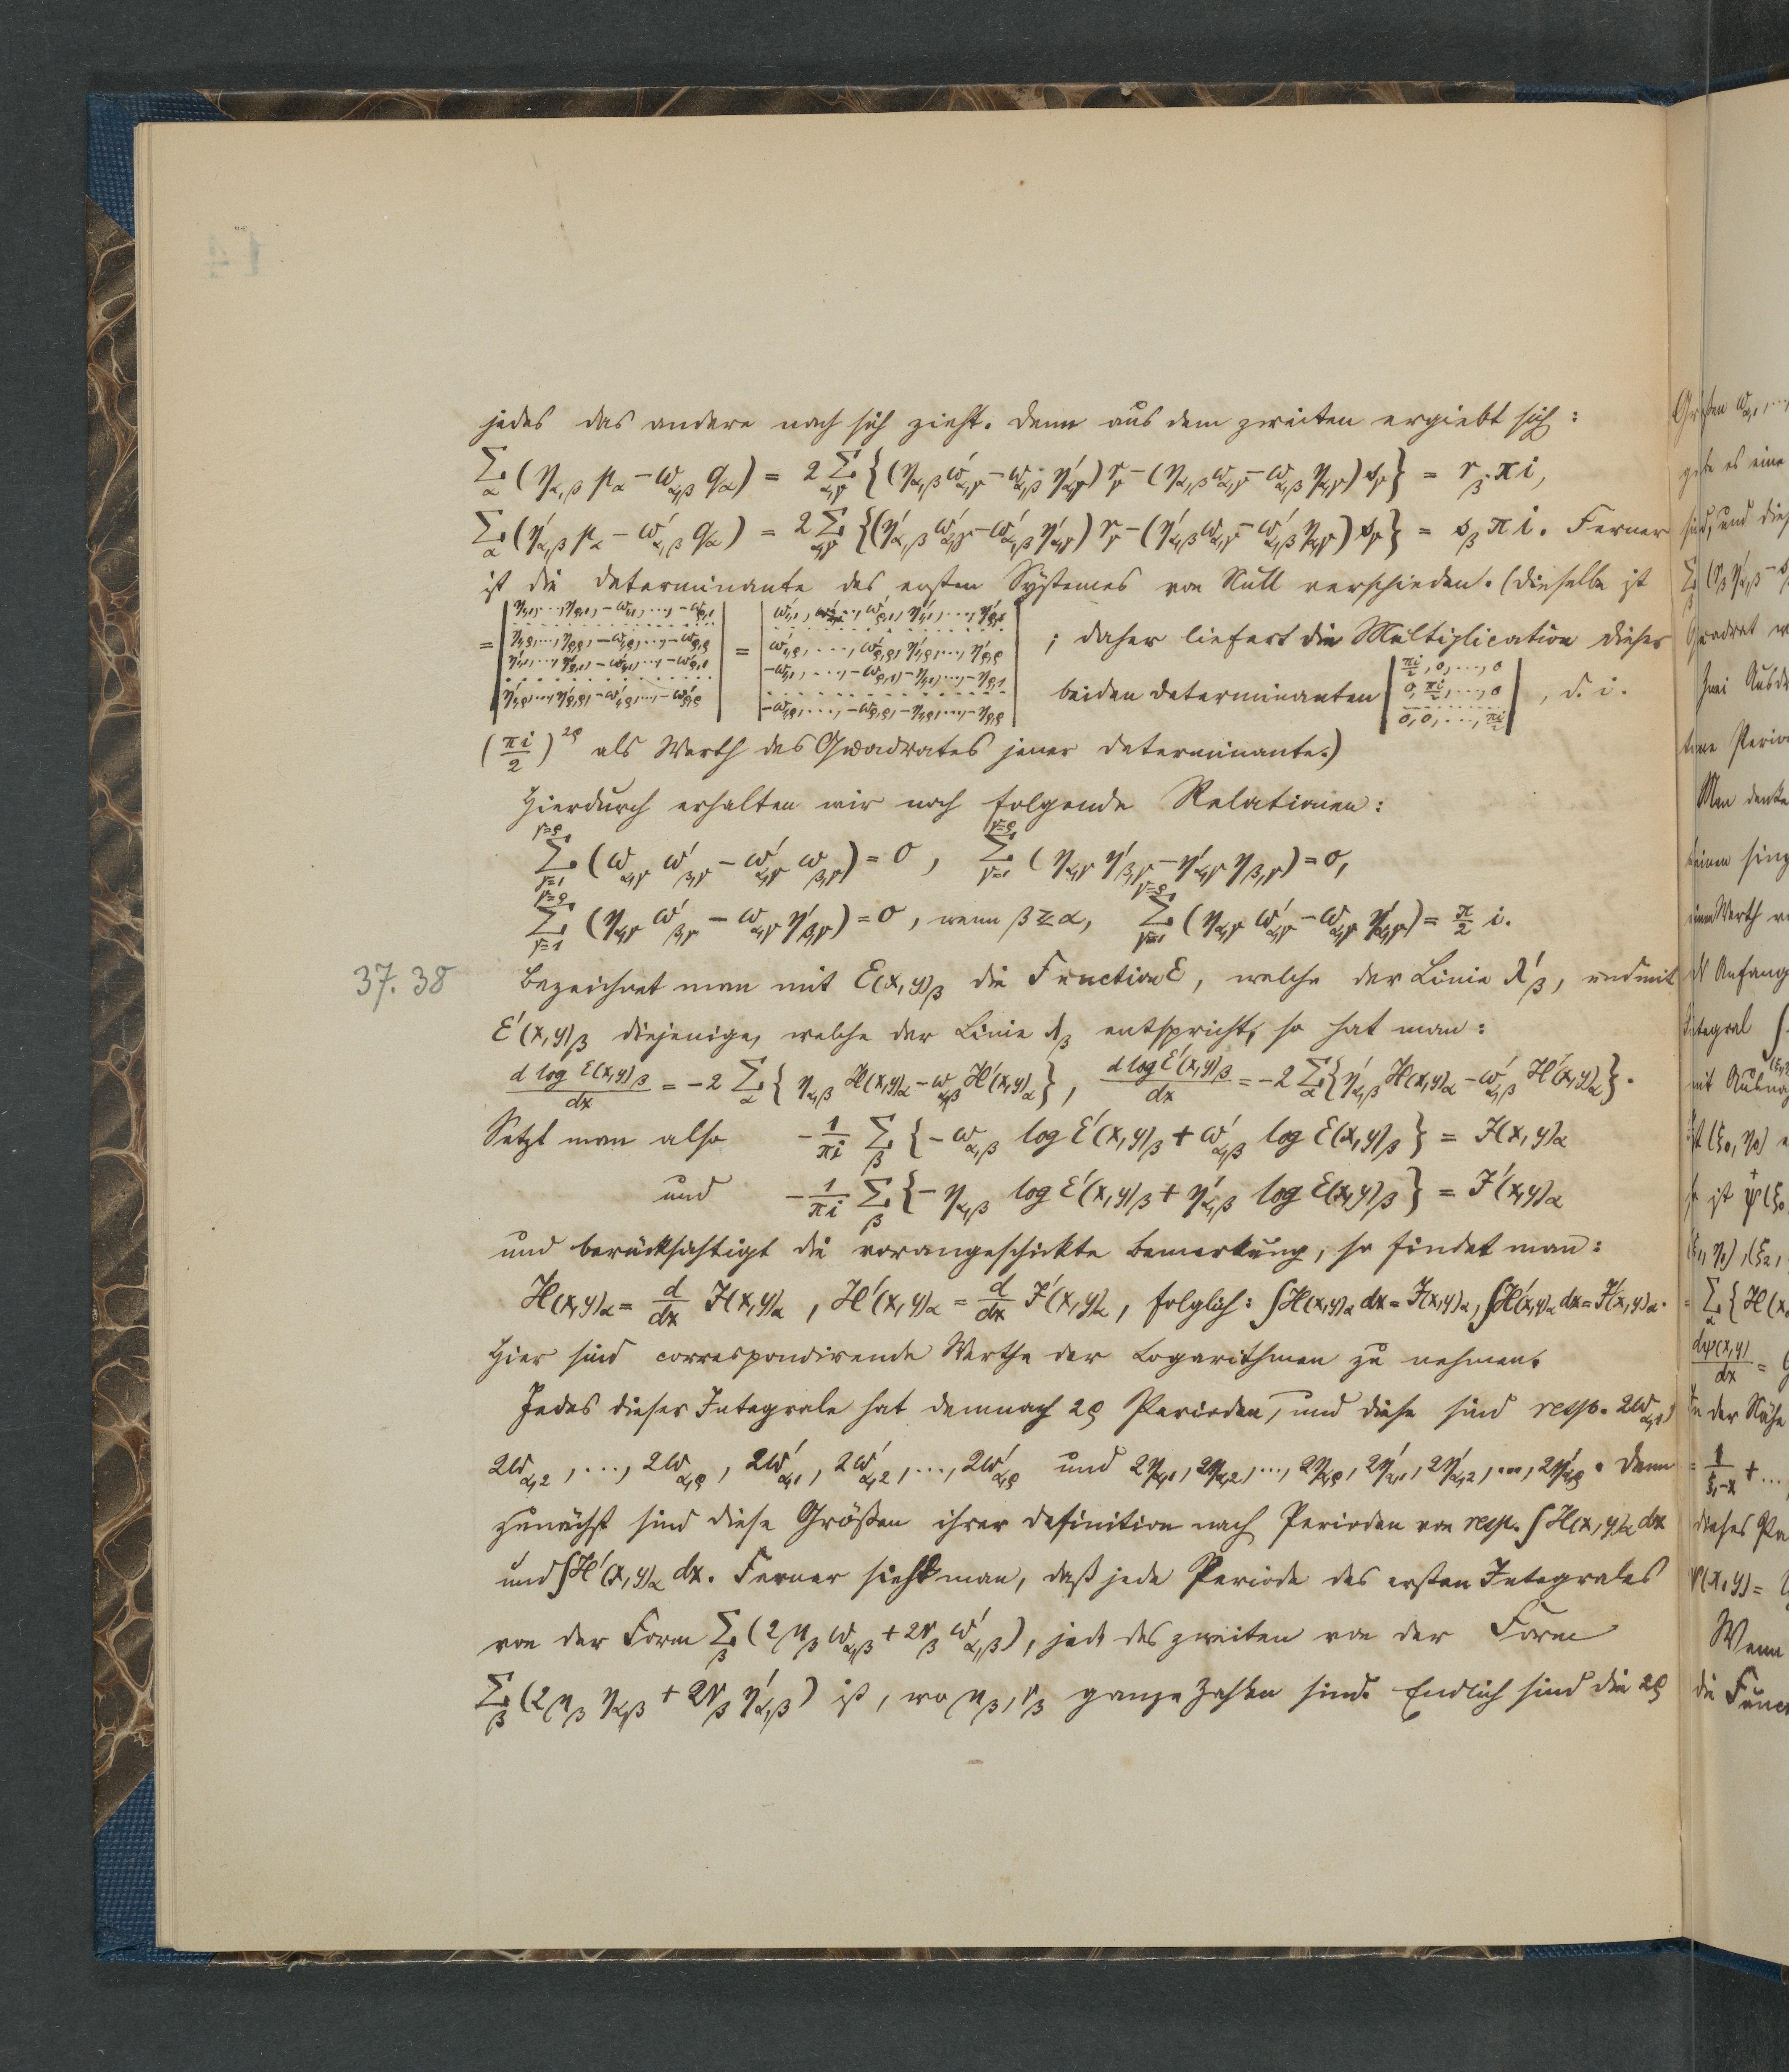 jedes das andere nach sich zieht. Denn aus dem zweiten ergiebt sich:
∑_α (η_{α,β} p_α − ω_{α,β} q_α) = 2 ∑_{α,γ} {(η_{α,β} ω′_{α,γ} − ω_{α,β} η′_{α,γ}) r_γ − (η_{α,β} ω_{α,γ} − ω_{α,β} η_{α,γ}) s_γ} = r_β πi,
∑_α (η′_{α,β} p_α − ω′_{α,β} q_α) = 2 ∑_{α,γ} {(η′_{α,β} ω′_{α,γ} − ω′_{α,β} η′_{α,γ}) r_γ − (η′_{α,β} ω_{α,γ} − ω′_{α,β} η_{α,γ}) s_γ} = s_β πi. Ferner
ist die Determinante des ersten Systemes von Null verschieden. (Dieselbe ist
= | η_{1,1}, …, η_{ρ,1}, −ω_{1,1}, …, −ω_{ρ,1} ; … ; η_{1,ρ}, …, η_{ρ,ρ}, −ω_{1,ρ}, …, −ω_{ρ,ρ} ; η′_{1,1}, …, η′_{ρ,1}, −ω′_{1,1}, …, −ω′_{ρ,1} ; … ; η′_{1,ρ}, …, η′_{ρ,ρ}, −ω′_{1,ρ}, …, −ω′_{ρ,ρ} | = | ω′_{1,1}, …, ω′_{ρ,1}, η′_{1,1}, …, η′_{ρ,1} ; … ; ω′_{1,ρ}, …, ω′_{ρ,ρ}, η′_{1,ρ}, …, η′_{ρ,ρ} ; −ω_{1,1}, …, −ω_{ρ,1}, −η_{1,1}, …, −η_{ρ,1} ; … ; −ω_{1,ρ}, …, −ω_{ρ,ρ}, −η_{1,ρ}, …, −η_{ρ,ρ} | ; daher liefert die Multiplication dieser
beiden Determinanten | πi/2, 0, …, 0 ; 0, πi/2, …, 0 ; … ; 0, 0, …, πi/2 | , d. i.
(πi/2)^{2ρ} als Werth des Quadrates jener Determinante.)
Hierdurch erhalten wir noch folgende Relationen:
∑_{γ=1}^{γ=ρ} (ω_{α,γ} ω′_{β,γ} − ω′_{α,γ} ω_{β,γ}) = 0, ∑_{γ=1}^{γ=ρ} (η_{α,γ} η′_{β,γ} − η′_{α,γ} η_{β,γ}) = 0,
∑_{γ=1}^{γ=ρ} (η_{α,γ} ω′_{β,γ} − ω_{α,γ} η′_{β,γ}) = 0, wenn β ≷ α, ∑_{γ=1}^{γ=ρ} (η_{α,γ} ω′_{α,γ} − ω_{α,γ} η′_{α,γ}) = π/2 i.
37. 38
Bezeichnet man mit E(x,y)_β die Function E, welche der Linie λ′_β, und mit
E′(x,y)_β diejenige, welche der Linie λ_β entspricht, so hat man:
d log E(x,y)_β / dx = −2 ∑_α {η_{α,β} H(x,y)_α − ω_{α,β} H′(x,y)_α}, d log E′(x,y)_β / dx = −2 ∑_α {η′_{α,β} H(x,y)_α − ω′_{α,β} H′(x,y)_α}.
Setzt man also −1/πi ∑_β {−ω_{α,β} log E′(x,y)_β + ω′_{α,β} log E(x,y)_β} = J(x,y)_α
und −1/πi ∑_β {−η_{α,β} log E′(x,y)_β + η′_{α,β} log E(x,y)_β} = J′(x,y)_α
und berücksichtigt die vorangeschickte Bemerkung, so findet man:
H(x,y)_α = d/dx J(x,y)_α, H′(x,y)_α = d/dx J′(x,y)_α, folglich: ∫H(x,y)_α dx = J(x,y)_α, ∫H′(x,y)_α dx = J′(x,y)_α.
Hier sind correspondirende Werthe der Logarithmen zu nehmen.
Jedes dieser Integrale hat demnach 2ρ Perioden, und diese sind resp. 2ω_{α,1},
2ω_{α,2}, …, 2ω_{α,ρ}, 2ω′_{α,1}, 2ω′_{α,2}, …, 2ω′_{α,ρ} und 2η_{α,1}, 2η_{α,2}, …, 2η_{α,ρ}, 2η′_{α,1}, 2η′_{α,2}, …, 2η′_{α,ρ}. Denn
zunächst sind diese Größen ihrer Definition nach Perioden von resp. ∫H(x,y)_α dx
und ∫H′(x,y)_α dx. Ferner sieht man, daß jede Periode des ersten Integrales
von der Form ∑_β (2μ_β ω_{α,β} + 2ν_β ω′_{α,β}), jede des zweiten von der Form
∑_β (2μ_β η_{α,β} + 2ν_β η′_{α,β}) ist, wo μ_β, ν_β ganze Zahlen sind. Endlich sind die 2ρ